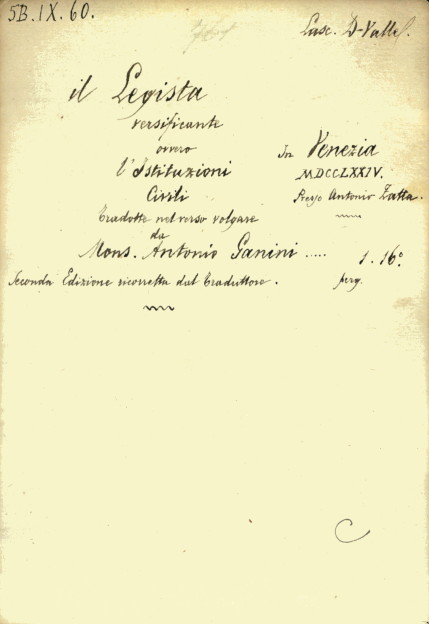 5B.IX.60.
Lasc. D-Valle
il Legista
versificante
ovvero
l'Istituzioni
Civili
Tradotte nel verso volgare
da
Mons. Antonio Ganini .....
Seconda Edizione ricorretta dal Traduttore.
In Venezia
MDCCLXXIV.
Presso Antonio Zatta.
1. 16º.
perg.
C